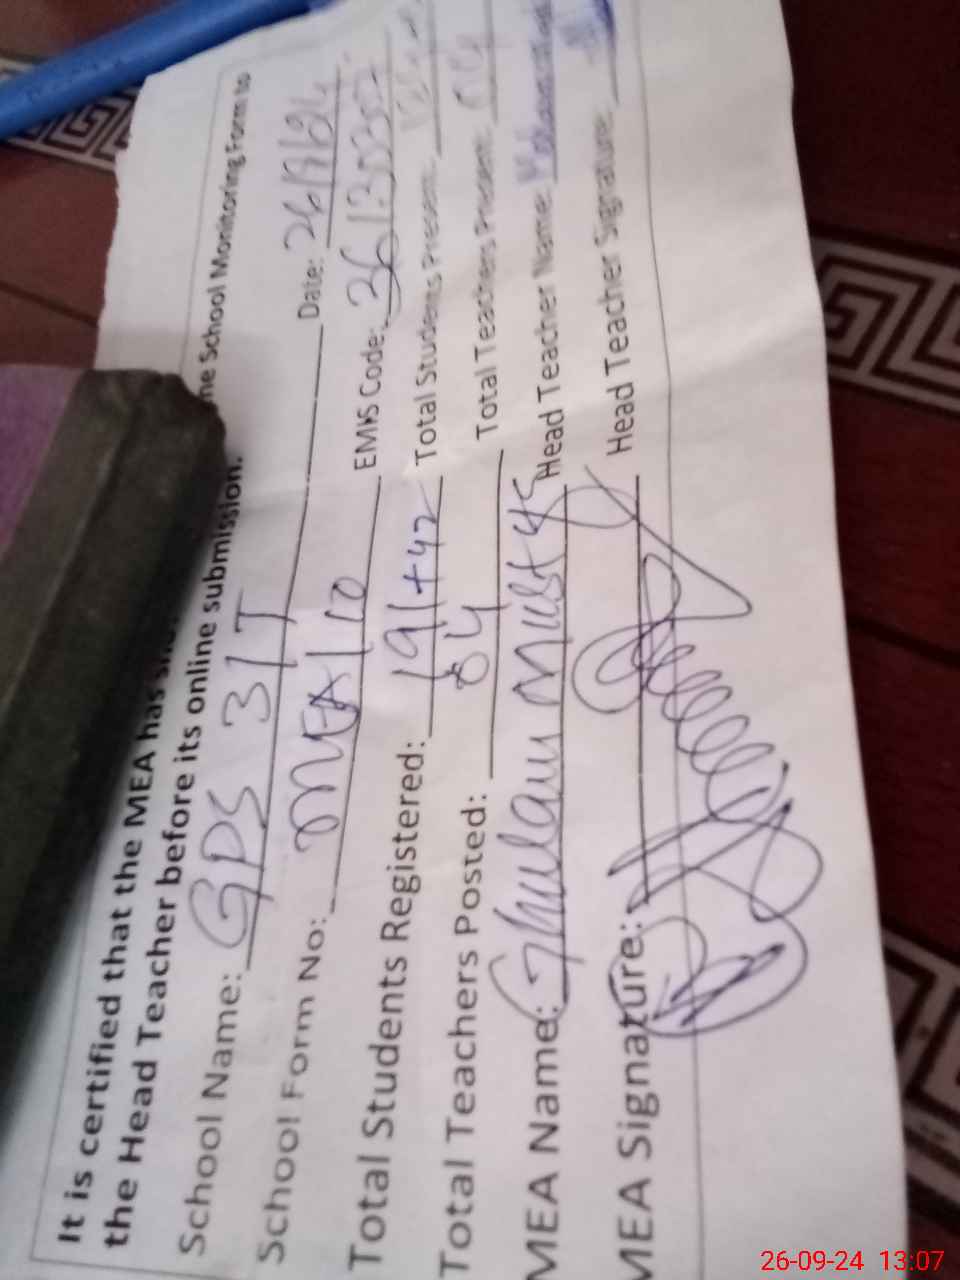 It is certified that the MEA has the School Monitoring Form to
the Head Teacher before its online submission.
School Name: GPS 31T Date: 26/9/24
School Form No: MEA/10 EMIS Code:
Total Students Registered: 191+42 Total Students Present:
Total Teachers Posted: 04 Total Teachers Present: 04
MEA Name: Ghulam Head Teacher Name:
MEA Signature: Head Teacher Signature:
26-09-24 13:07